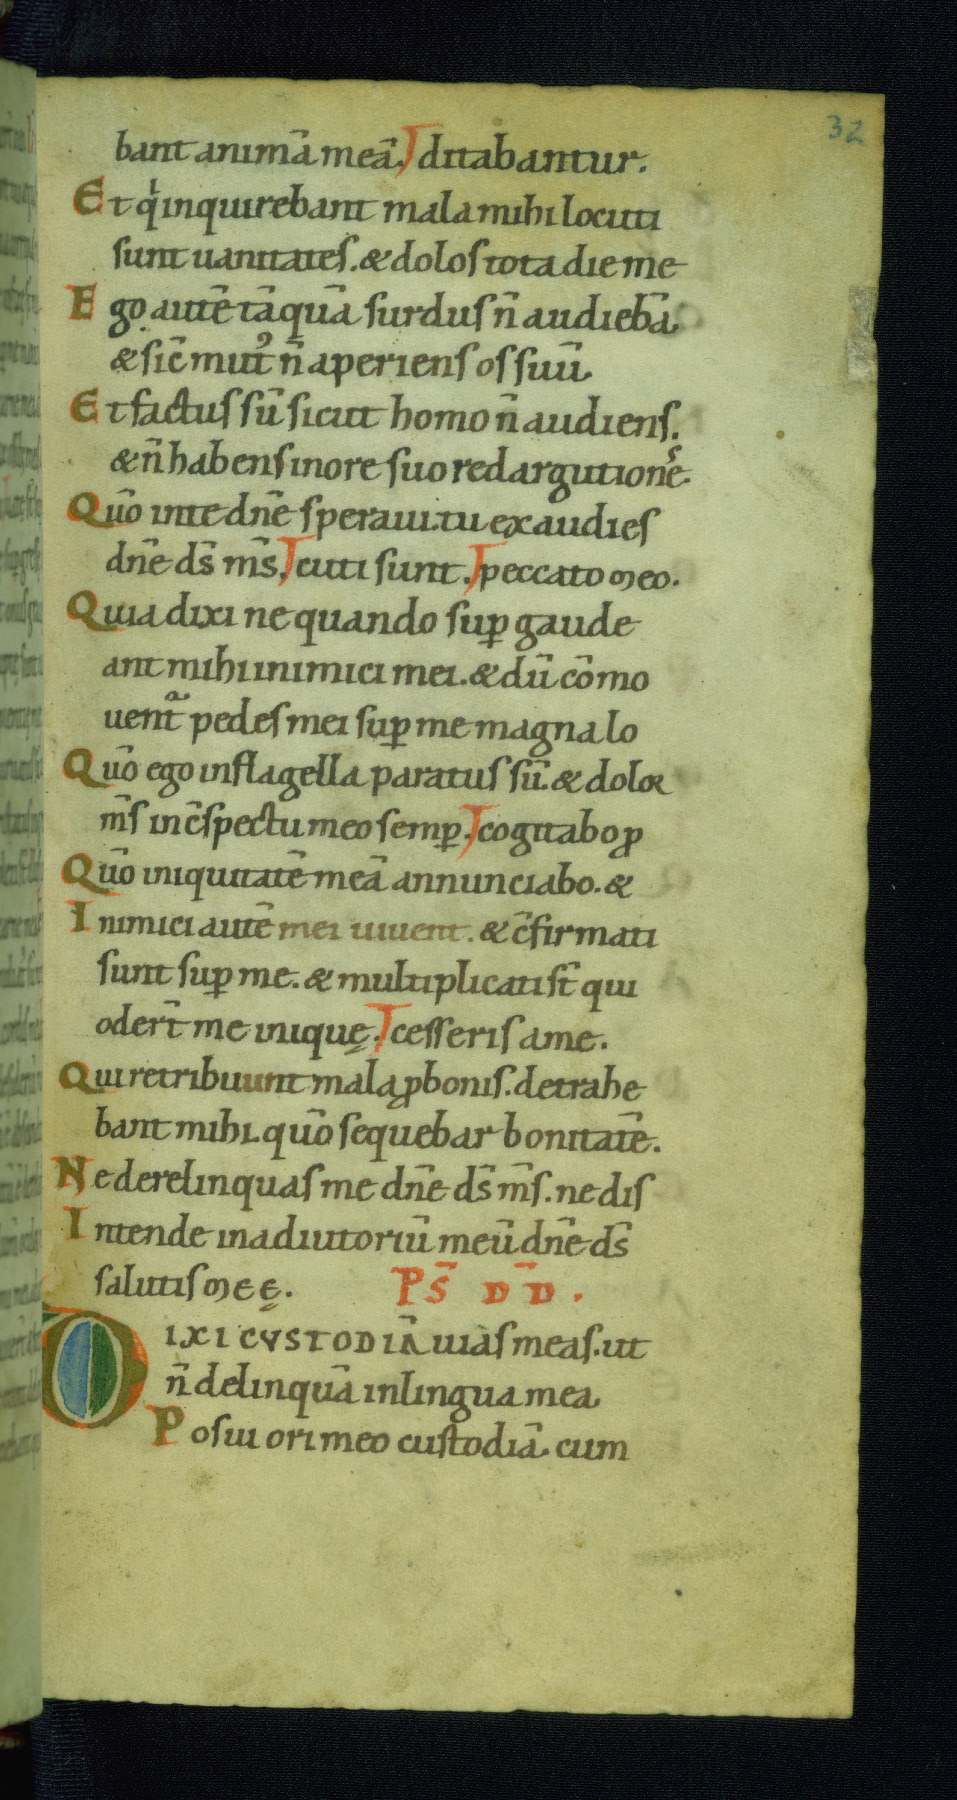 32
bant animā meā. ditabantur.
Et qͥ inquirebant mala mihi locuti
sunt uanitates. & dolos tota die me
Ego autē tāquā surdus n̄ audiebā
& sic̄ mut᷒ n̄ aperiens os suū.
Et factus sū sicut homo n̄ audiens.
& n̄ habens in ore suo redargutiones̄.
Quō in te dn̄e speraui. tu exaudies
dn̄e ds̄ ms̄. cuti sunt. peccato meo.
Quia dixi ne quando suꝑ gaude
ant mihi inimici mei. & dū cōmo
uent̄ pedes mei suꝑ me magna lo
Quō ego in flagella paratus sū. & dolor
ms̄ in c̄spectu meo semꝑ. cogitabo ꝓ
Quō iniquitatē meā annunciabo. &
Inimici autē mei uiuent. & c̄firmati
sunt suꝑ me. & multiplicati st̄ qui
odert̄ me iniquę. cesseris a me.
Qui retribuunt mala ꝓ bonis. detrahe
bant mihi. quō sequebar bonitatē.
Ne derelinquas me dn̄e ds̄ ms̄. ne dis
Intende in adiutoriū meū dn̄e ds̄
salutis meę. PS̄ DD̄.
DIXI CUSTODIĀ uias meas. ut
n̄ delinquā in lingua mea.
Posui ori meo custodiā. cum